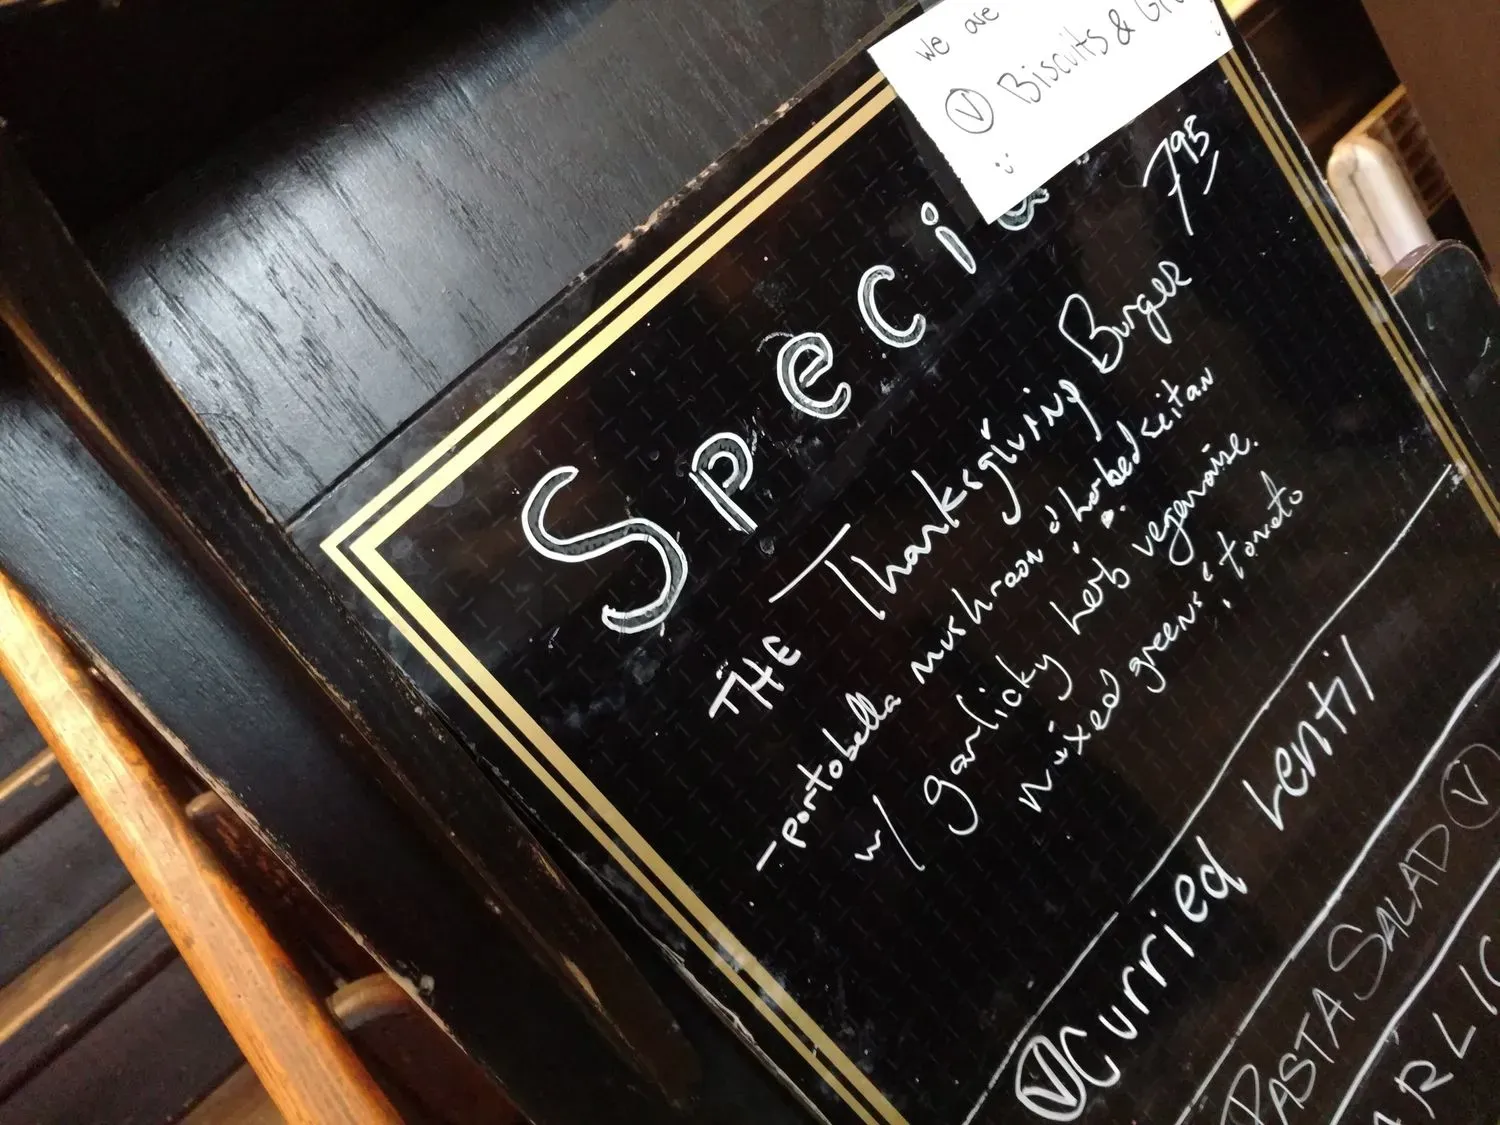 we are
Ⓥ Biscuits &
:)
Specia
THE Thanksgiving Burger 7.95
- portobella mushroom & herbed seitan
w/ garlicky herb vegenaise.
mixed greens & tomato
Ⓥ Curried Lentil
PASTA SALAD Ⓥ
ARLIC